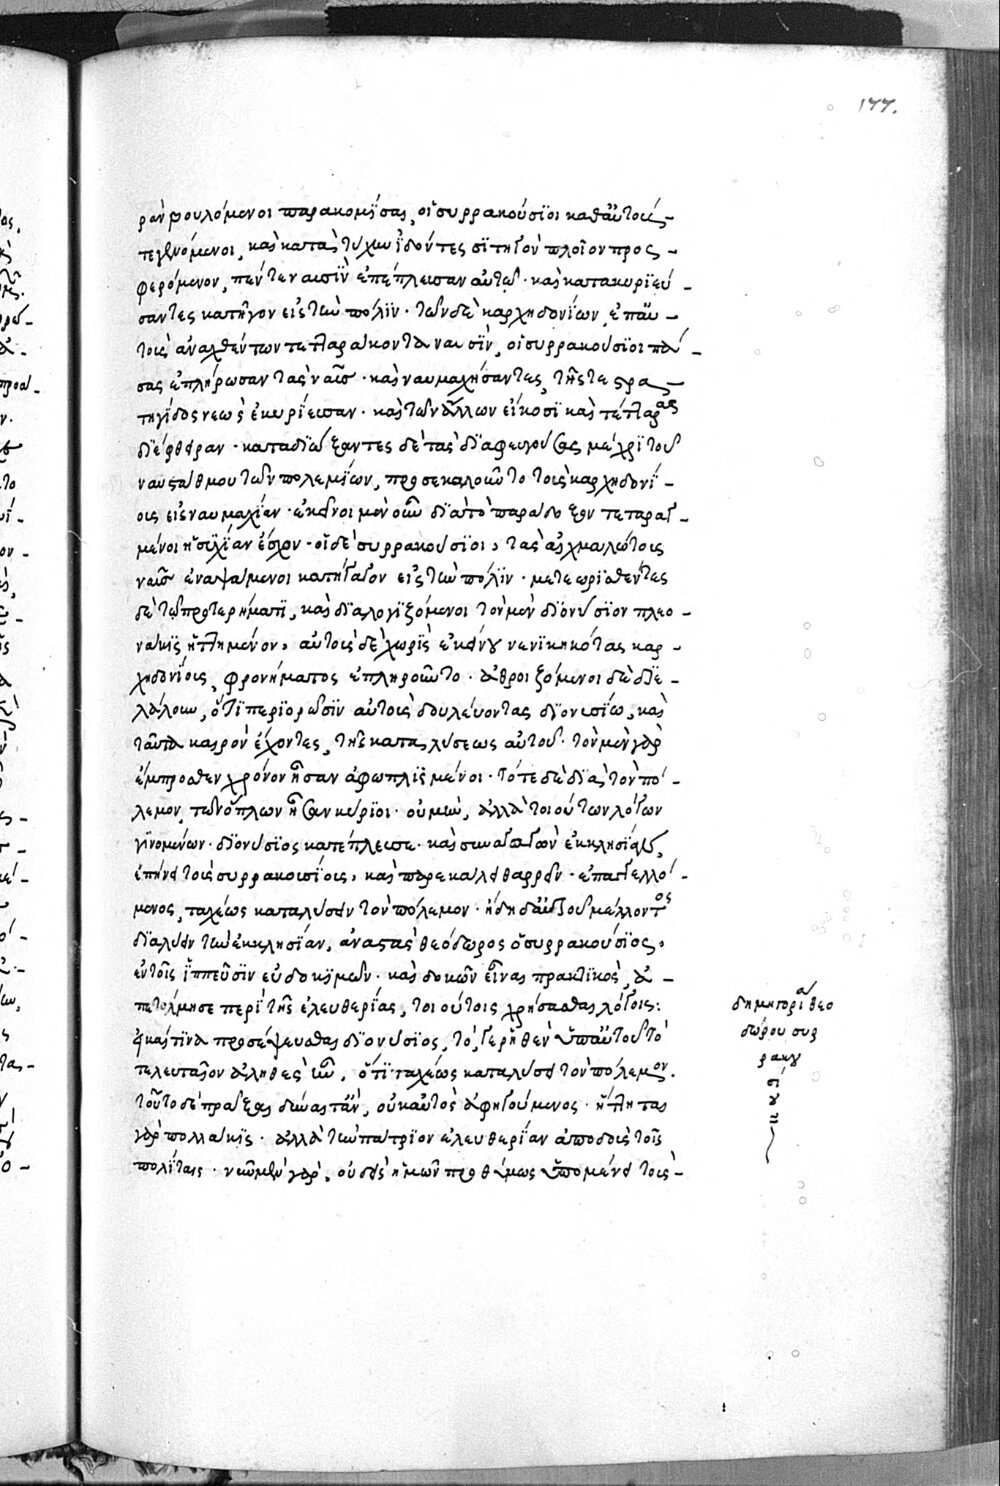 177.
ραν βουλόμενοι παρακομίσαι, οἱ συρρακούσϊοι καθ' αὑτοὺς
γεγενόμενοι, καὶ κατὰ τύχην ἰδόντες σϊτηγὸν πλοῖον προς
φερόμενον, πέντε ναυσὶν ἐπέπλευσαν αὐτῷ· καὶ κατακυριεύ
σαντες κατῆγον εἰς τὴν πόλϊν· τῶν δὲ καρχηδονίων, ἐπ' αὐ
τοὺς ἀναχθέντων τετταράκοντα ναυσὶν, οἱ συρρακούσϊοι πά
σας ἐπλήρωσαν τὰς ναῦς· καὶ ναυμαχήσαντες, τῆς τε στρα
τηγίδος νεὼς ἐκυρίευσαν· καὶ τῶν ἄλλων εἴκοσϊ καὶ τέτταρας
διέφθειραν· καταδϊώξαντες δὲ τὰς διαφευγούσας μέχρϊ τοῦ
ναυστάθμου τῶν πολεμίων, προσεκαλοῦντο τοὺς καρχηδονί
ους εἰς ναυμαχίαν· ἐκεῖνοι μὲν οὖν διὰ τὸ παράδοξον τεταραγ
μένοι ἡσϋχίαν ἔσχον· οἱ δὲ συρρακούσϊοι, τὰς αἰχμαλώτους
ναῦς ἐναψάμενοι κατήγαγον εἰς τὴν πόλϊν· μετεωρϊσθέντες
δὲ τῷ προτερήματϊ, καὶ διαλογιζόμενοι τὸν μὲν διονύσϊον πλεο
νάκϊς ἡττημένον, αὐτοὺς δὲ χωρὶς ἐκείνου νενϊκηκότας καρ
χηδονίους, φρονήματος ἐπληροῦντο· ἀθροιζόμενοι δὲ διε
λάλουν, ὅτϊ περιορῶσϊν αὑτοὺς δουλεύοντας διονυσίω, καὶ
ταῦτα καιρὸν ἔχοντες, τῆς καταλύσεως αὐτοῦ· τὸν μὲν γὰρ
ἔμπροσθεν χρόνον ἦσαν ἀφωπλισμένοι· τότε δὲ διὰ τὸν πό
λεμον, τῶν ὅπλων ἦσαν κύρϊοι· οὐ μὴν, ἀλλὰ τοιούτων λόγων
γινομένων· διονύσϊος κατέπλευσε· καὶ συναγαγὼν ἐκκλησίαν,
ἐπήνει τοὺς συρρακουσίους, καὶ παρεκάλει θαρρεῖν· ἐπαγγελλό
μενος, ταχέως καταλύσειν τὸν πόλεμον· ἤδη δ' αὐτοῦ μέλλοντος
διαλύειν τὴν ἐκκλησίαν, ἀναστὰς θεόδωρος ὁ συρρακούσϊος,
ἐν τοῖς ἱππεῦσϊν εὐδοκϊμῶν· καὶ δοκῶν εἶναι πρακτικὸς, ἀ
πετόλμησε περὶ τῆς ἐλευθερίας, τοιούτοις χρήσασθαι λόγοις:
εἰ καί τινα προσέψευσται διονύσϊος, τό, γε ῥηθὲν ὑπ' αὐτοῦ τὸ
τελευταῖον ἀληθὲς ἦν, ὅτϊ ταχέως καταλύσει τὸν πόλεμον.
τοῦτο δὲ πρᾶξαι δύναιτ' ἄν, οὐκ αὐτὸς ἀφηγούμενος· ἥττηται
γὰρ πολλάκϊς· ἀλλὰ τὴν πάτριον ἐλευθερίαν ἀποδοὺς τοῖς
πολίταις· νῦν μὲν γὰρ, οὐδεὶς ἡμῶν προθύμως ὑπομένει τοὺς
δημηγορία θεο
δώρου συρ
ρακου